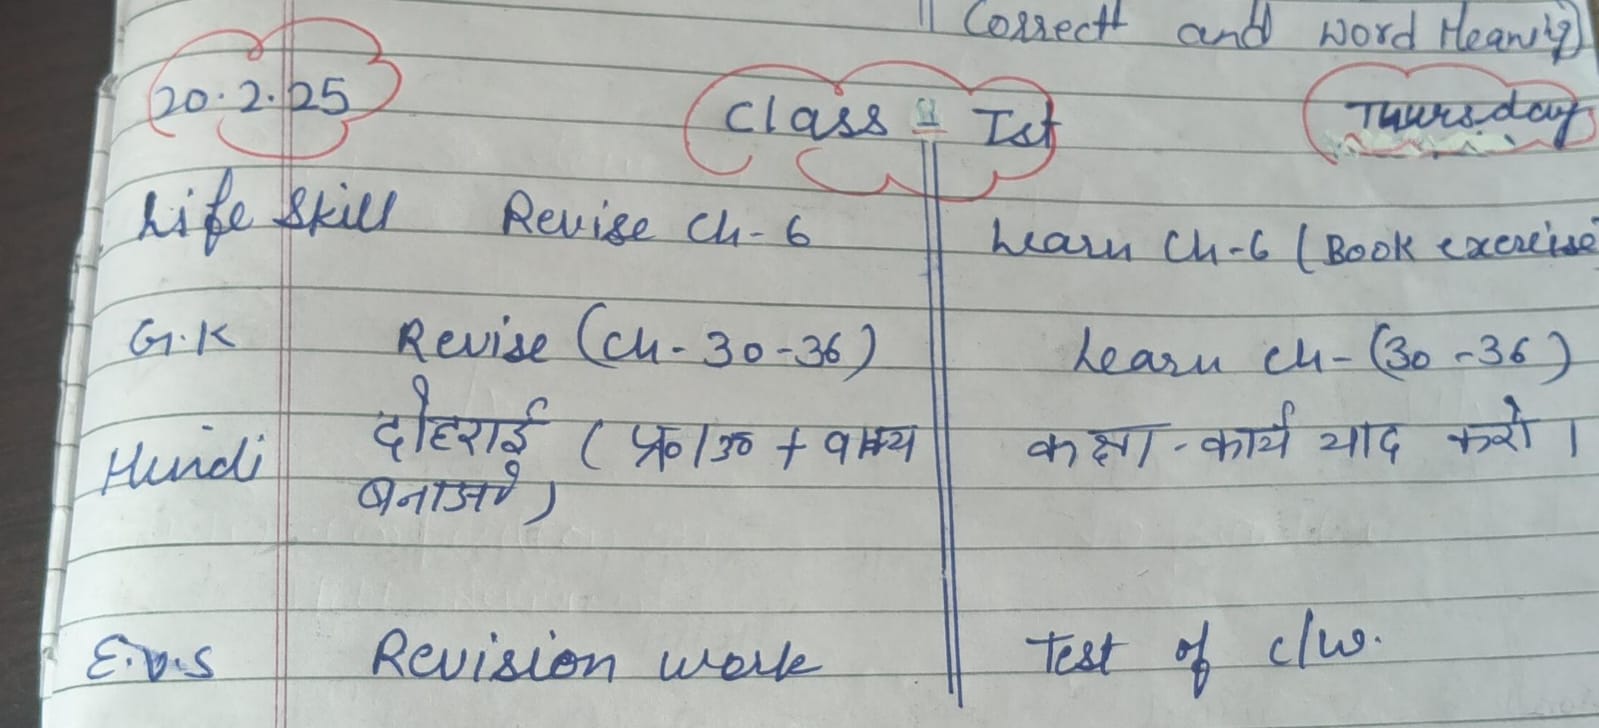 Correctt and Word Meaning)
20.2.25 Class - Ist Thursday
Life Skill Revise Ch-6 Learn Ch-6 (Book exercise
G.K Revise (Ch-30-36) Learn Ch-(30-36)
Hindi दोहराई ( प्र०/उ० + वाक्य कक्षा-कार्य याद करो ।
बनाओ)
E.V.S Revision work Test of c/w.